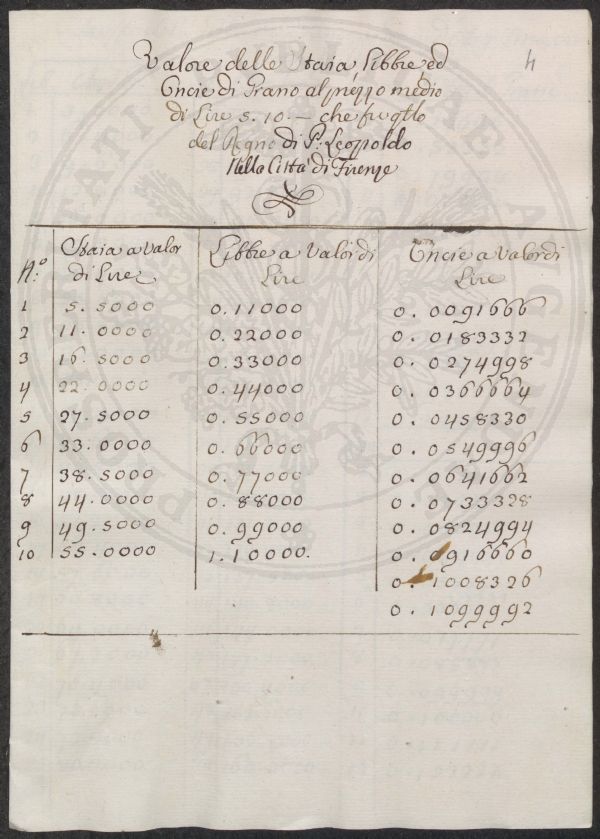 4
Valore delle Staia Libbre ed
Oncie di Grano al prezzo medio
di Lire 5. 10. — che fu sotto
del Regno di P: Leopoldo
Nella Città di Firenze
N.º Staia a valor di Lire Libbre a Valor di Lire Oncie a valor di Lire
1 5. 5000 0. 11000 0. 0091666
2 11. 0000 0. 22000 0. 0183332
3 16. 5000 0. 33000 0. 0274998
4 22. 0000 0. 44000 0. 0366664
5 27. 5000 0. 55000 0. 0458330
6 33. 0000 0. 66000 0. 0549996
7 38. 5000 0. 77000 0. 0641662
8 44. 0000 0. 88000 0. 0733328
9 49. 5000 0. 99000 0. 0824994
10 55. 0000 1. 10000. 0. 0916660
0. 1008326
0. 1099992